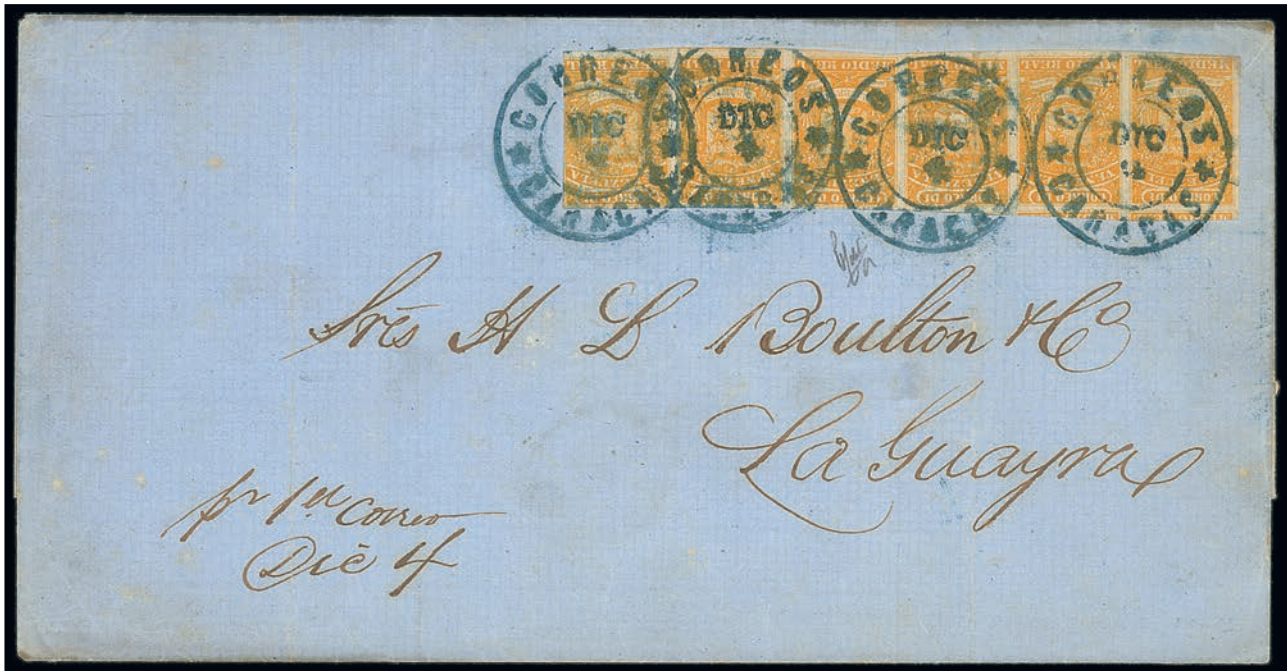 CORREOS
DIC
CARACAS
CORREOS
DIC
CARACAS
CORREOS
DIC
CARACAS
CORREOS
DIC
CARACAS
MEDIO REAL
MEDIO REAL
Sres H L Boulton & Co
La Guayra
pr 1a Correo
Dic 4